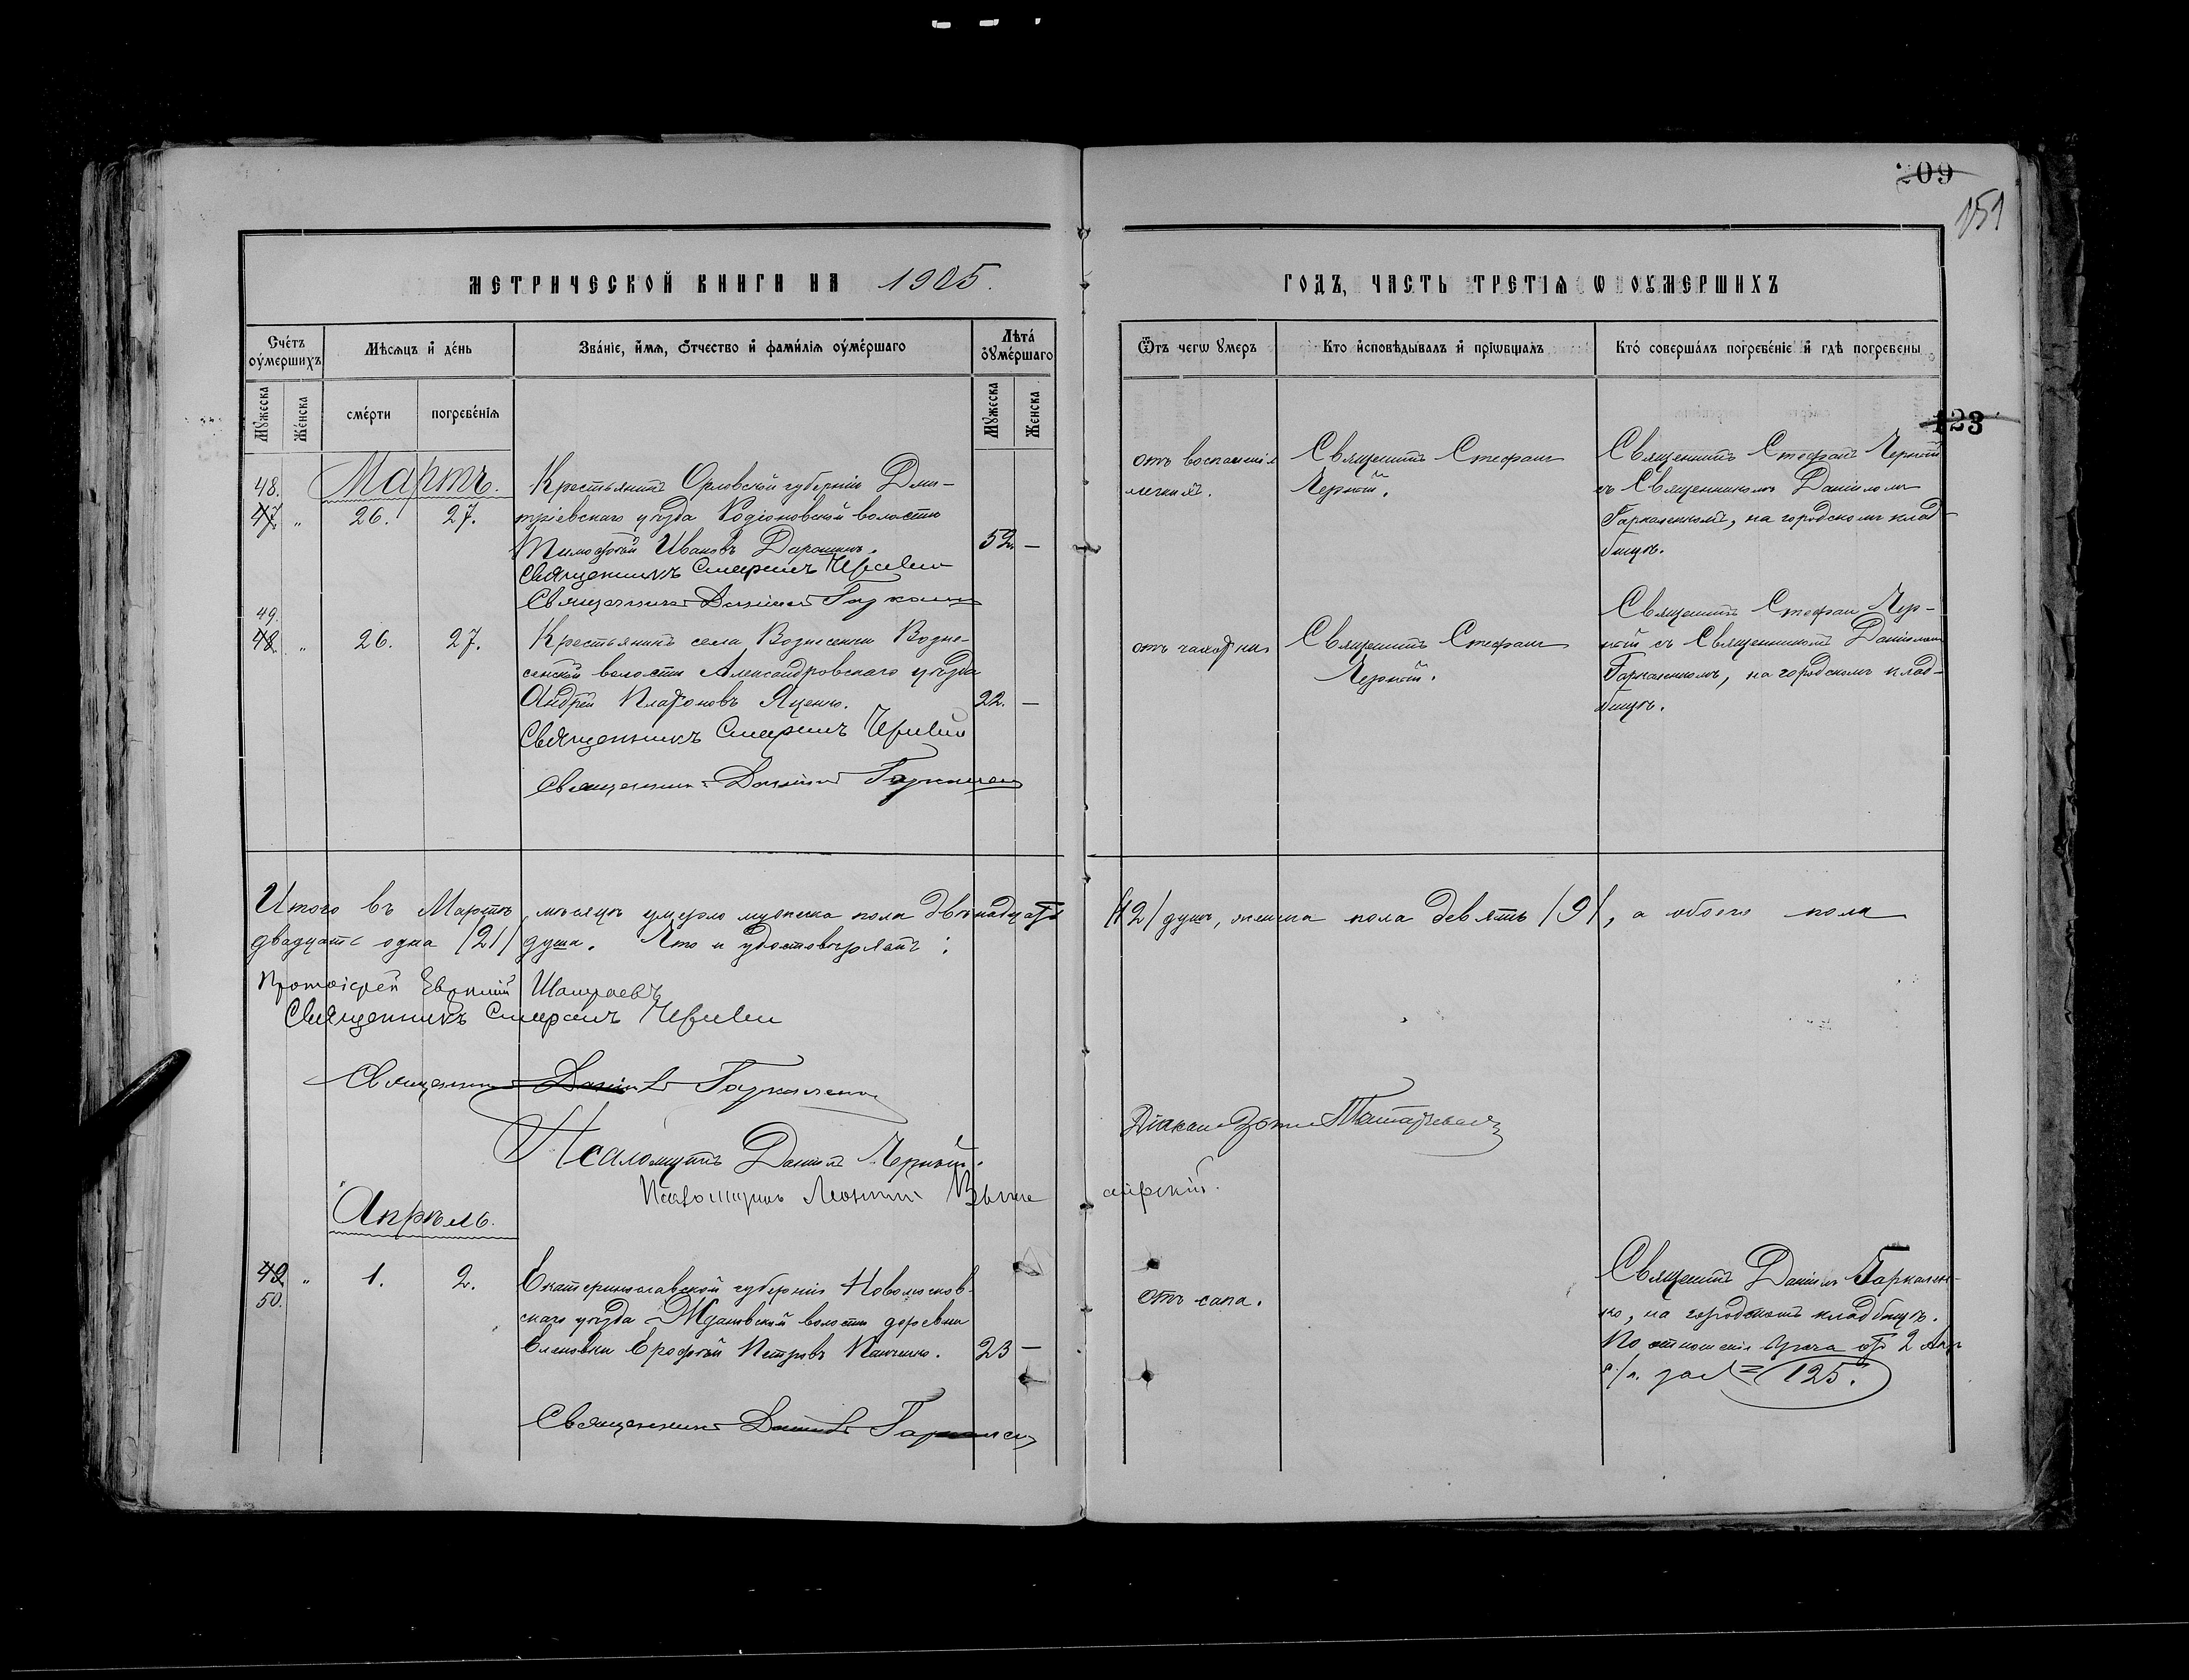 209
151
МЕТРИЧЕСКОЙ КНИГИ НА 1905. ГОДЪ, ЧАСТЬ ТРЕТІѦ Ѡ ОУМЕРШИХЪ
Сче́тъ оу́мершихъ
Мѣсѧцъ и҆ де́нь
Зва́ніе, и҆́мѧ, ѻ҆́тчество и҆ фами́лія оу҆ме́ршаго
Лѣта́ оу҆ме́ршаго
Ѿъ чегѡ ꙋмеръ
Кто и҆сповѣ́дывалъ и҆ прїѡбща́лъ
Кто́ соверша́лъ погребе́ніе и҆ гдѣ погребены
Мꙋ́жеска
Же́нска
сме́рти
погребе́нїѧ
Мꙋ́жеска
Же́нска
123
Мартъ.
48.
47. " 26. 27.
Крестьянинъ Орловской губерніи Дми-
тріевскаго уѣзда Родіоновской волости
Тимофей Ивановъ Дарошинъ. 52 —
Священникъ Стефанъ Черный
Священникъ Даніилъ Гаркаленко
отъ воспаленія
легкихъ.
Священникъ Стефанъ
Черный.
Священникъ Стефанъ Черный
съ Священникомъ Даніиломъ
Гаркаленкомъ, на городскомъ клад-
бищѣ.
49.
48. " 26. 27.
Крестьянинъ села Вознесенки Возне-
сенской волости Александровскаго уѣзда
Андрей Платоновъ Яценко. 22. —
Священникъ Стефанъ Черный
Священникъ Даніилъ Гаркаленко
отъ чахотки
Священникъ Стефанъ
Черный.
Священникъ Стефанъ Чер-
ный съ Священникомъ Даніиломъ
Гаркаленкомъ, на городскомъ клад-
бищѣ.
Итого въ Мартѣ мѣсяцѣ умерло мужеска пола двѣнадцать /12/ душъ, женска пола девять /9/, а обоего пола
двадцать одна /21/ душа. Что и удостовѣряютъ:
Протоіерей Евфимій
Священникъ Стефанъ Черный
Священникъ Даніилъ Гаркаленко
Діаконъ
Псаломщикъ Даніилъ Черный.
Псаломщикъ
Апрѣль.
49. " 1. 2.
50.
Екатеринославской губерніи Новомосков-
скаго уѣзда Ждановской волости деревни
Еленовки Ерофей Петровъ Панченко. 23 —
Священникъ Даніилъ Гаркаленко
отъ сапа.
Священникъ Даніилъ Гаркален-
ко, на городскомъ кладбищѣ.
По отношенію врача отъ 2 Апр
с/г. за № 125.